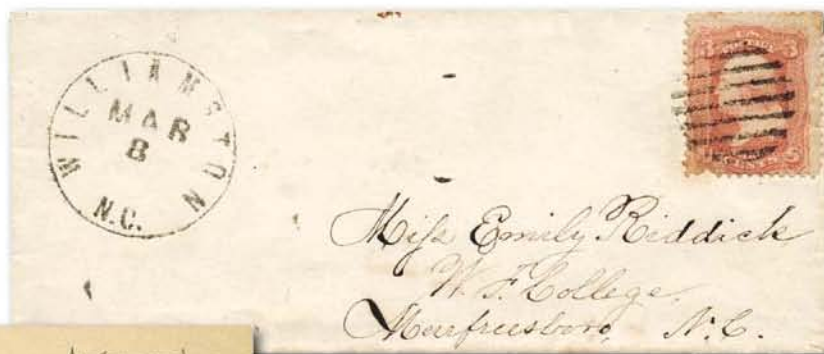 WILLIAMSTON
MAR
8
N.C.
3 3
Miss Emily Riddick
W. F. College,
Murfreesboro, N.C.